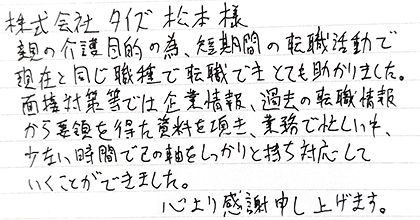 株式会社 タイズ 松本様
親の介護目的の為、短期間の転職活動で
現在と同じ職種で転職できとても助かりました。
面接対策等では企業情報、過去の転職情報
から要領を得た資料を頂き、業務で忙しい中、
少ない時間で己の軸をしっかりと持ち対応して
いくことができました。
心より感謝申し上げます。